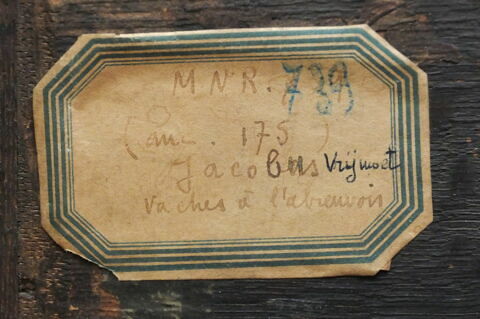 M N R. 739
(anc. 175)
Jacobus Vrijmoet
Vaches à l'abreuvoir